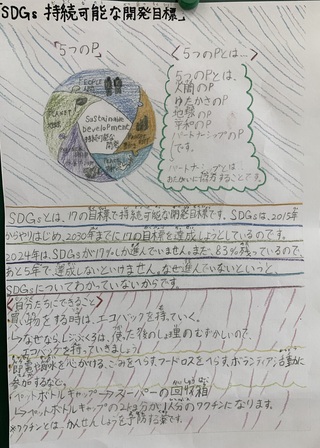 「SDGs 持続可能な開発目標」
「5つのP」
PEOPLE
人間
PLANET
地球
Sustainable
Development
持続可能な
開発
<5つのPとは…>
5つのPとは、
人間のP
ゆたかさのP
地球のP
平和のP
パートナーシップのP
です。
パートナーシップとは
おたがいに協力することです。
SDGsとは、17の目標で持続可能な開発目標です。SDGsは、2015年
からやりはじめ、2030年までに17の目標を達成しようとしているのです。
2024年は、SDGsが17%しか進んでいません。また、83%残っているので、
あと5年で達成しないといけません。なぜ進んでいないというと、
SDGsについてわかっていないからです。
<自分たちにできること>
・買い物をする時は、エコバックを持っていく。
→なぜなら、レジぶくろは、使った後のしょ理のむずかしいので、
エコバックを持っていきましょう!
・節電、節水を心がける、ごみをへらす、フードロスをへらす、ボランティア活動に
参加するなど。
・ペットボトルキャップ→スーパーの回収箱
→ペットボトルキャップの2こ分が、1人分のワクチンになります。
*ワクチンとは、かんせんしょうを予防する薬です。